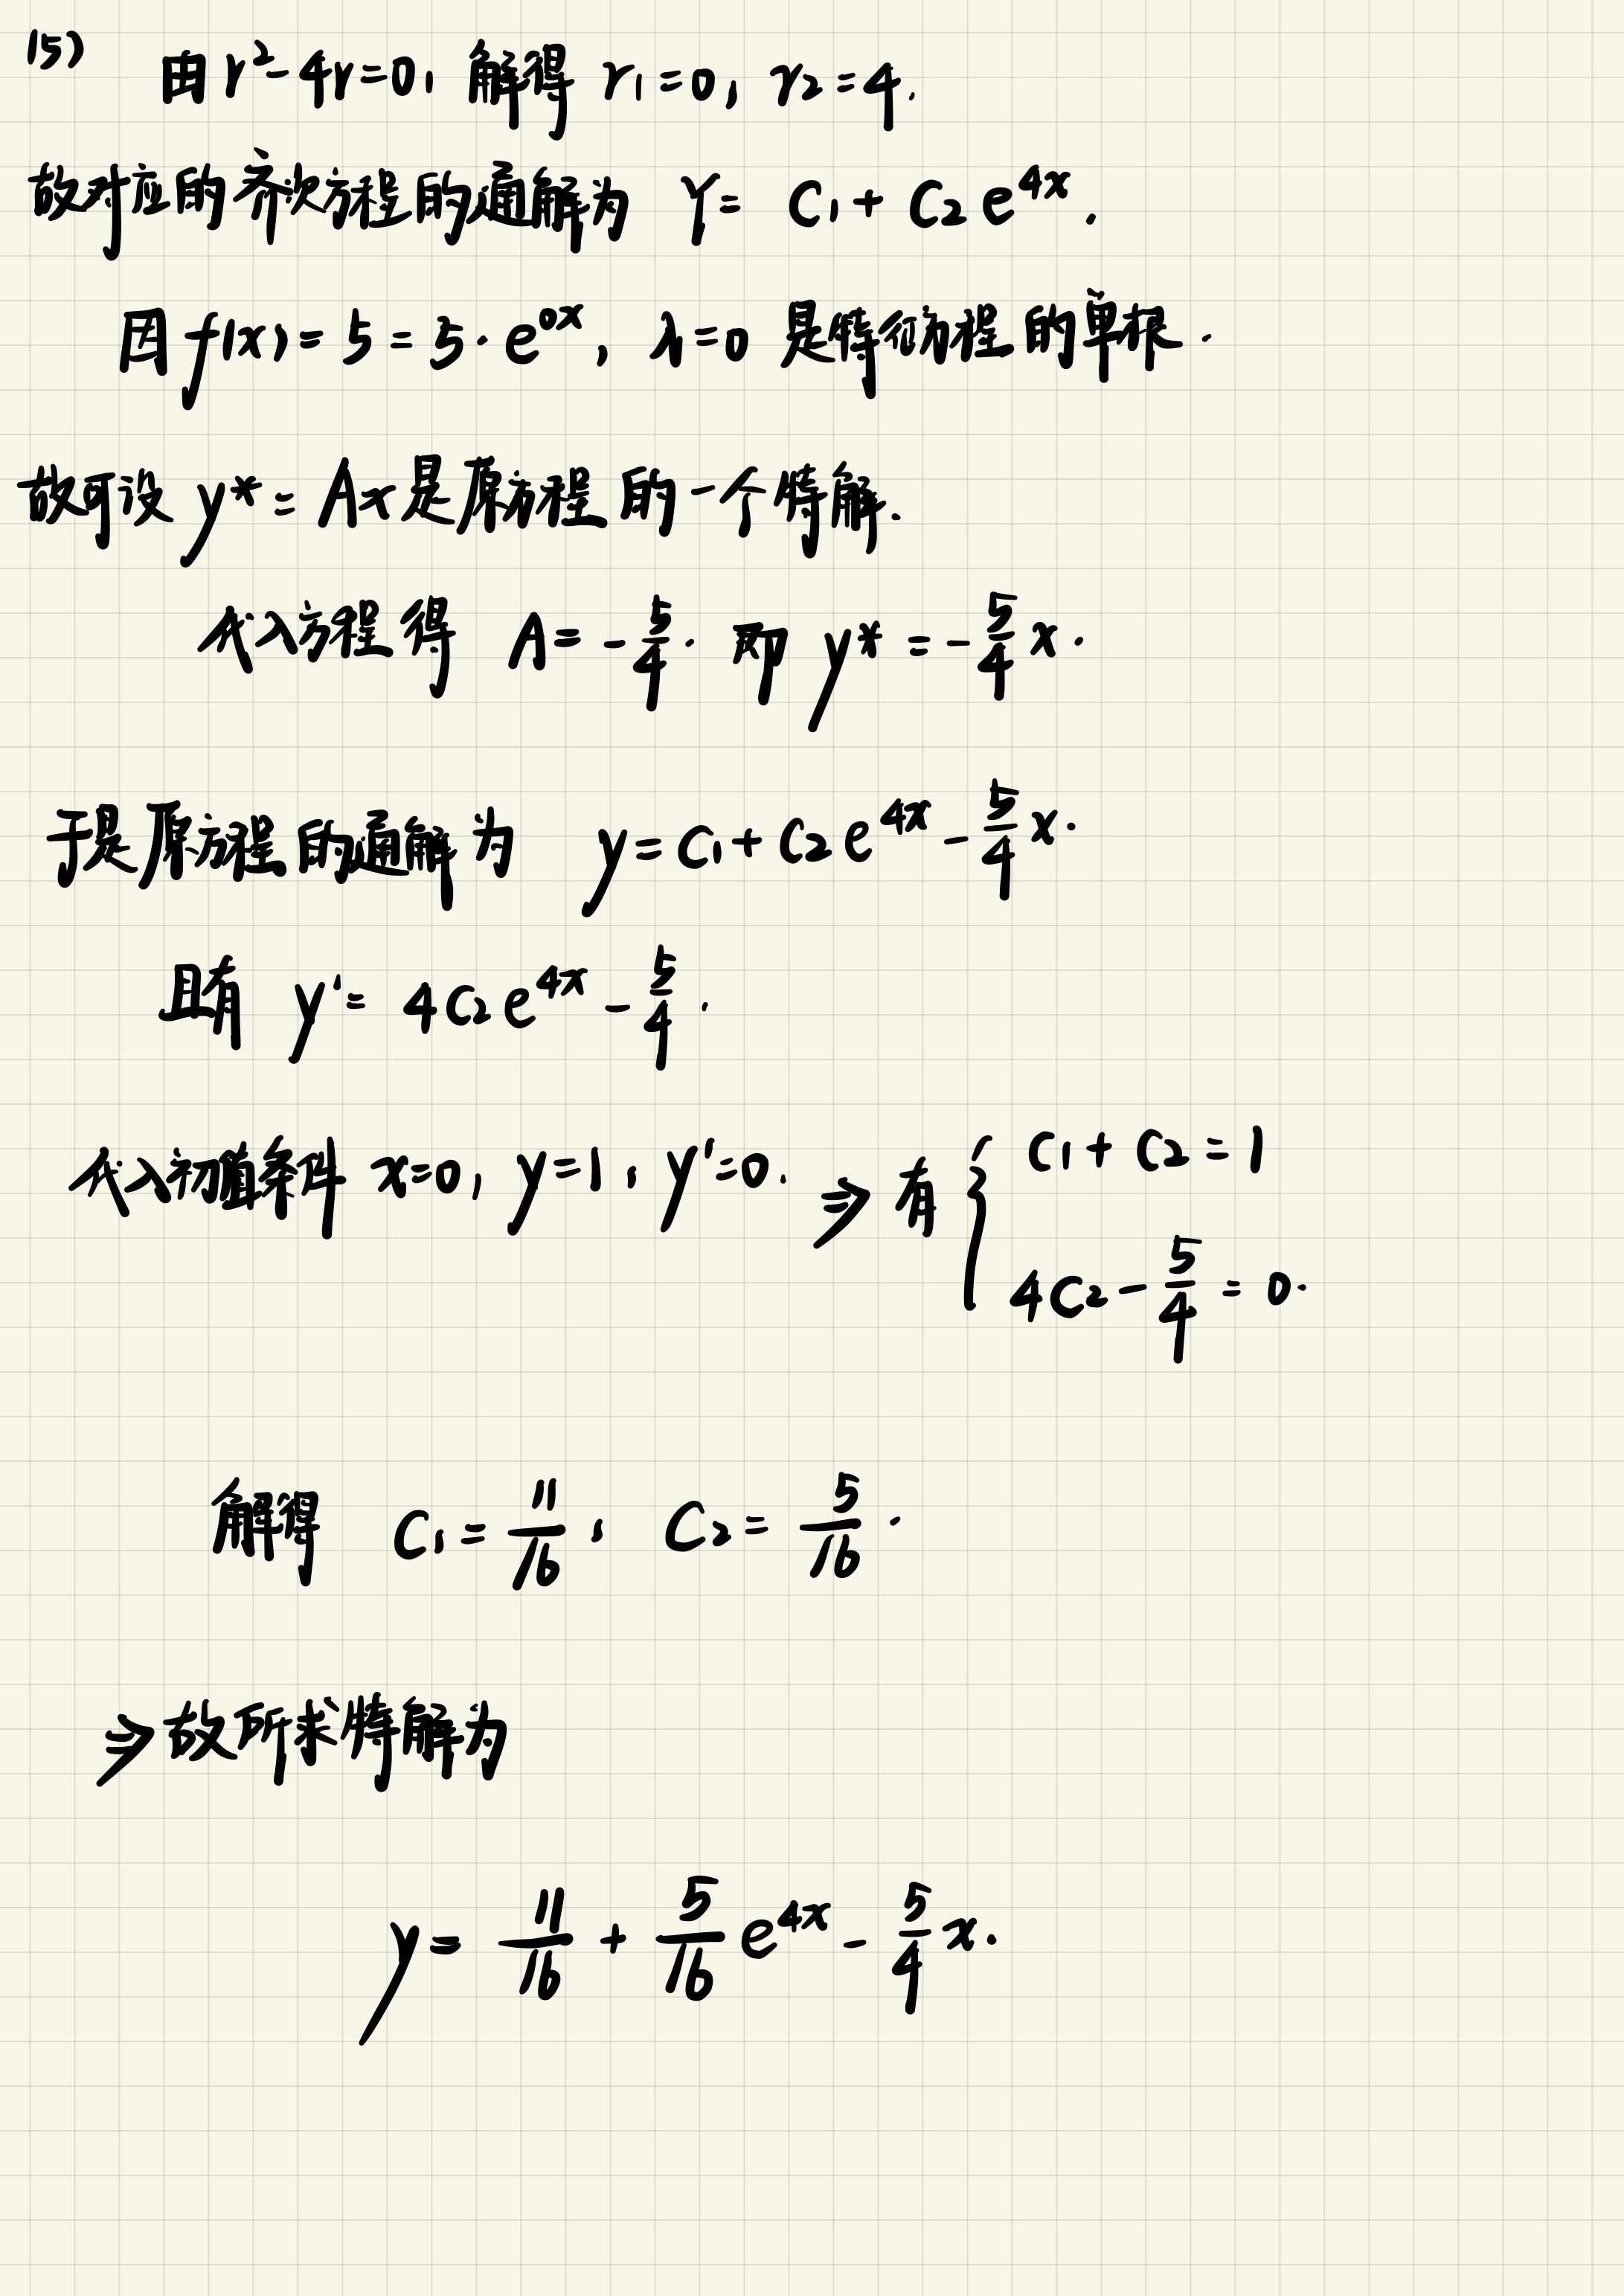 (5) 由 r²-4r=0, 解得 r₁=0, r₂=4.
故对应的齐次方程的通解为 Y= C₁+ C₂e^{4x}.
因 f(x)= 5 = 5·e^{0x}, λ=0 是特征方程的单根.
故可设 y*= Ax是原方程的一个特解.
代入方程得 A= -5/4. 即 y* = -5/4 x.
于是原方程的通解为 y= C₁+ C₂e^{4x} - 5/4 x.
且有 y'= 4C₂e^{4x} - 5/4.
代入初值条件 x=0, y=1, y'=0. ⇒ 有 { C₁+ C₂=1
4C₂ - 5/4 = 0.
解得 C₁= 11/16, C₂= 5/16.
⇒ 故所求特解为
y= 11/16 + 5/16 e^{4x} - 5/4 x.